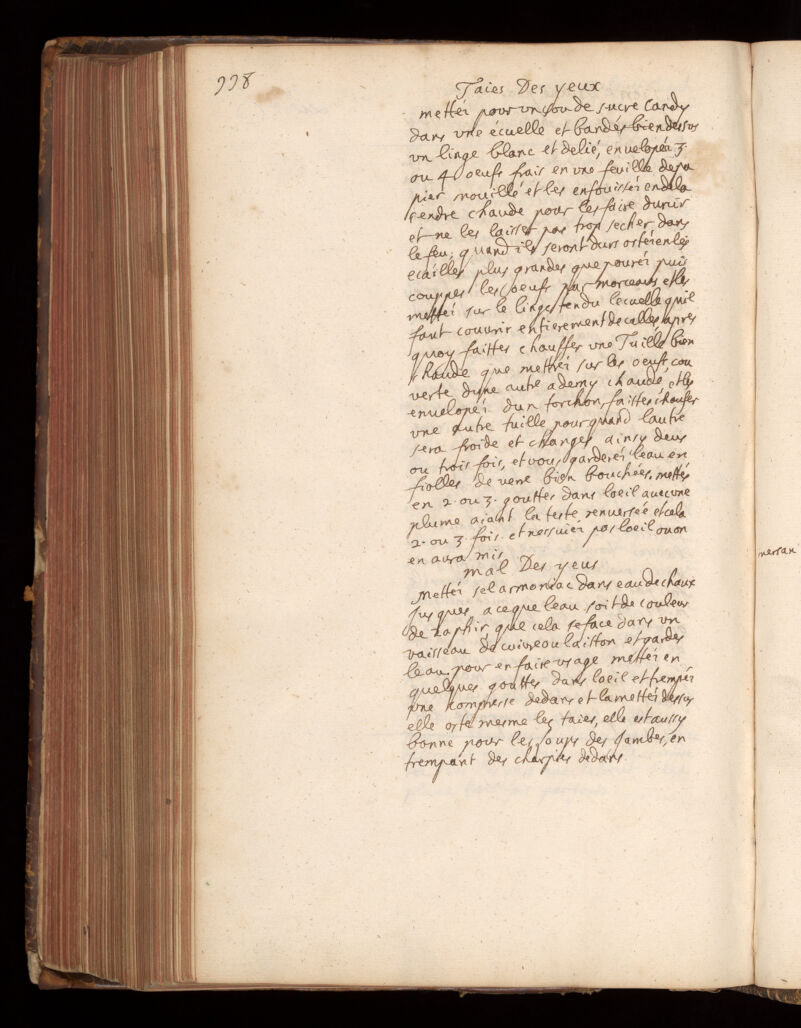 998
Taies Des yeux
mettéi pour un sou de sucre Candy
dans vne écuelle et bandés bien dessus
vn linge blanc et delié, envelopéi 3
ou 4 oeufs frais en vne feuille de pa
pier mouillé et les enfouisséi en de la
cendre chaude pour les faire durcir
et ne les laisser pas trop secher dans
le feu, quand ils seront durs ostéi en les
ecailles plus grandes que pouréi puis
couppes les oeufs par morceaux et les
mettéi sur le linge tendu lecuelle quil
faut couvrir entierement de calles apres
quoy faittes chauffer vne Tuille bien
chaude que mettréi sur les oeufs cou
verte dune autre a demy chaude, et les
envelopéi dun torchon, faittes choufer
vne autre tuille pour quand lautre
sera froide et changes ainsy deux
ou trois fois, et vous garderéi leau en
fiolles de verre bien bouchées. mettés
en 2. ou 3. gouttes dans loeil avec vne
plume aiant la teste renversée et cela
2. ou 3 fois. et nessuiéi pas loeil ou on
en aura mis
mal Des yeus
Mettéi sel armoniac dans eau de chaux
jusques a ce que leau soit de couleur
de zaphir, que cela se face dans un
vaisseau de cuivre ou laitton et gardes
leau. pour en faire vsage mettéi en
quelques gouttes dans loeil et trempéi
vne compresse dedans et la mettéi dessus
elle oste mesme les taies, elle est aussy
bonne pour les loups des Jambes, en
trempant des charpies dedans